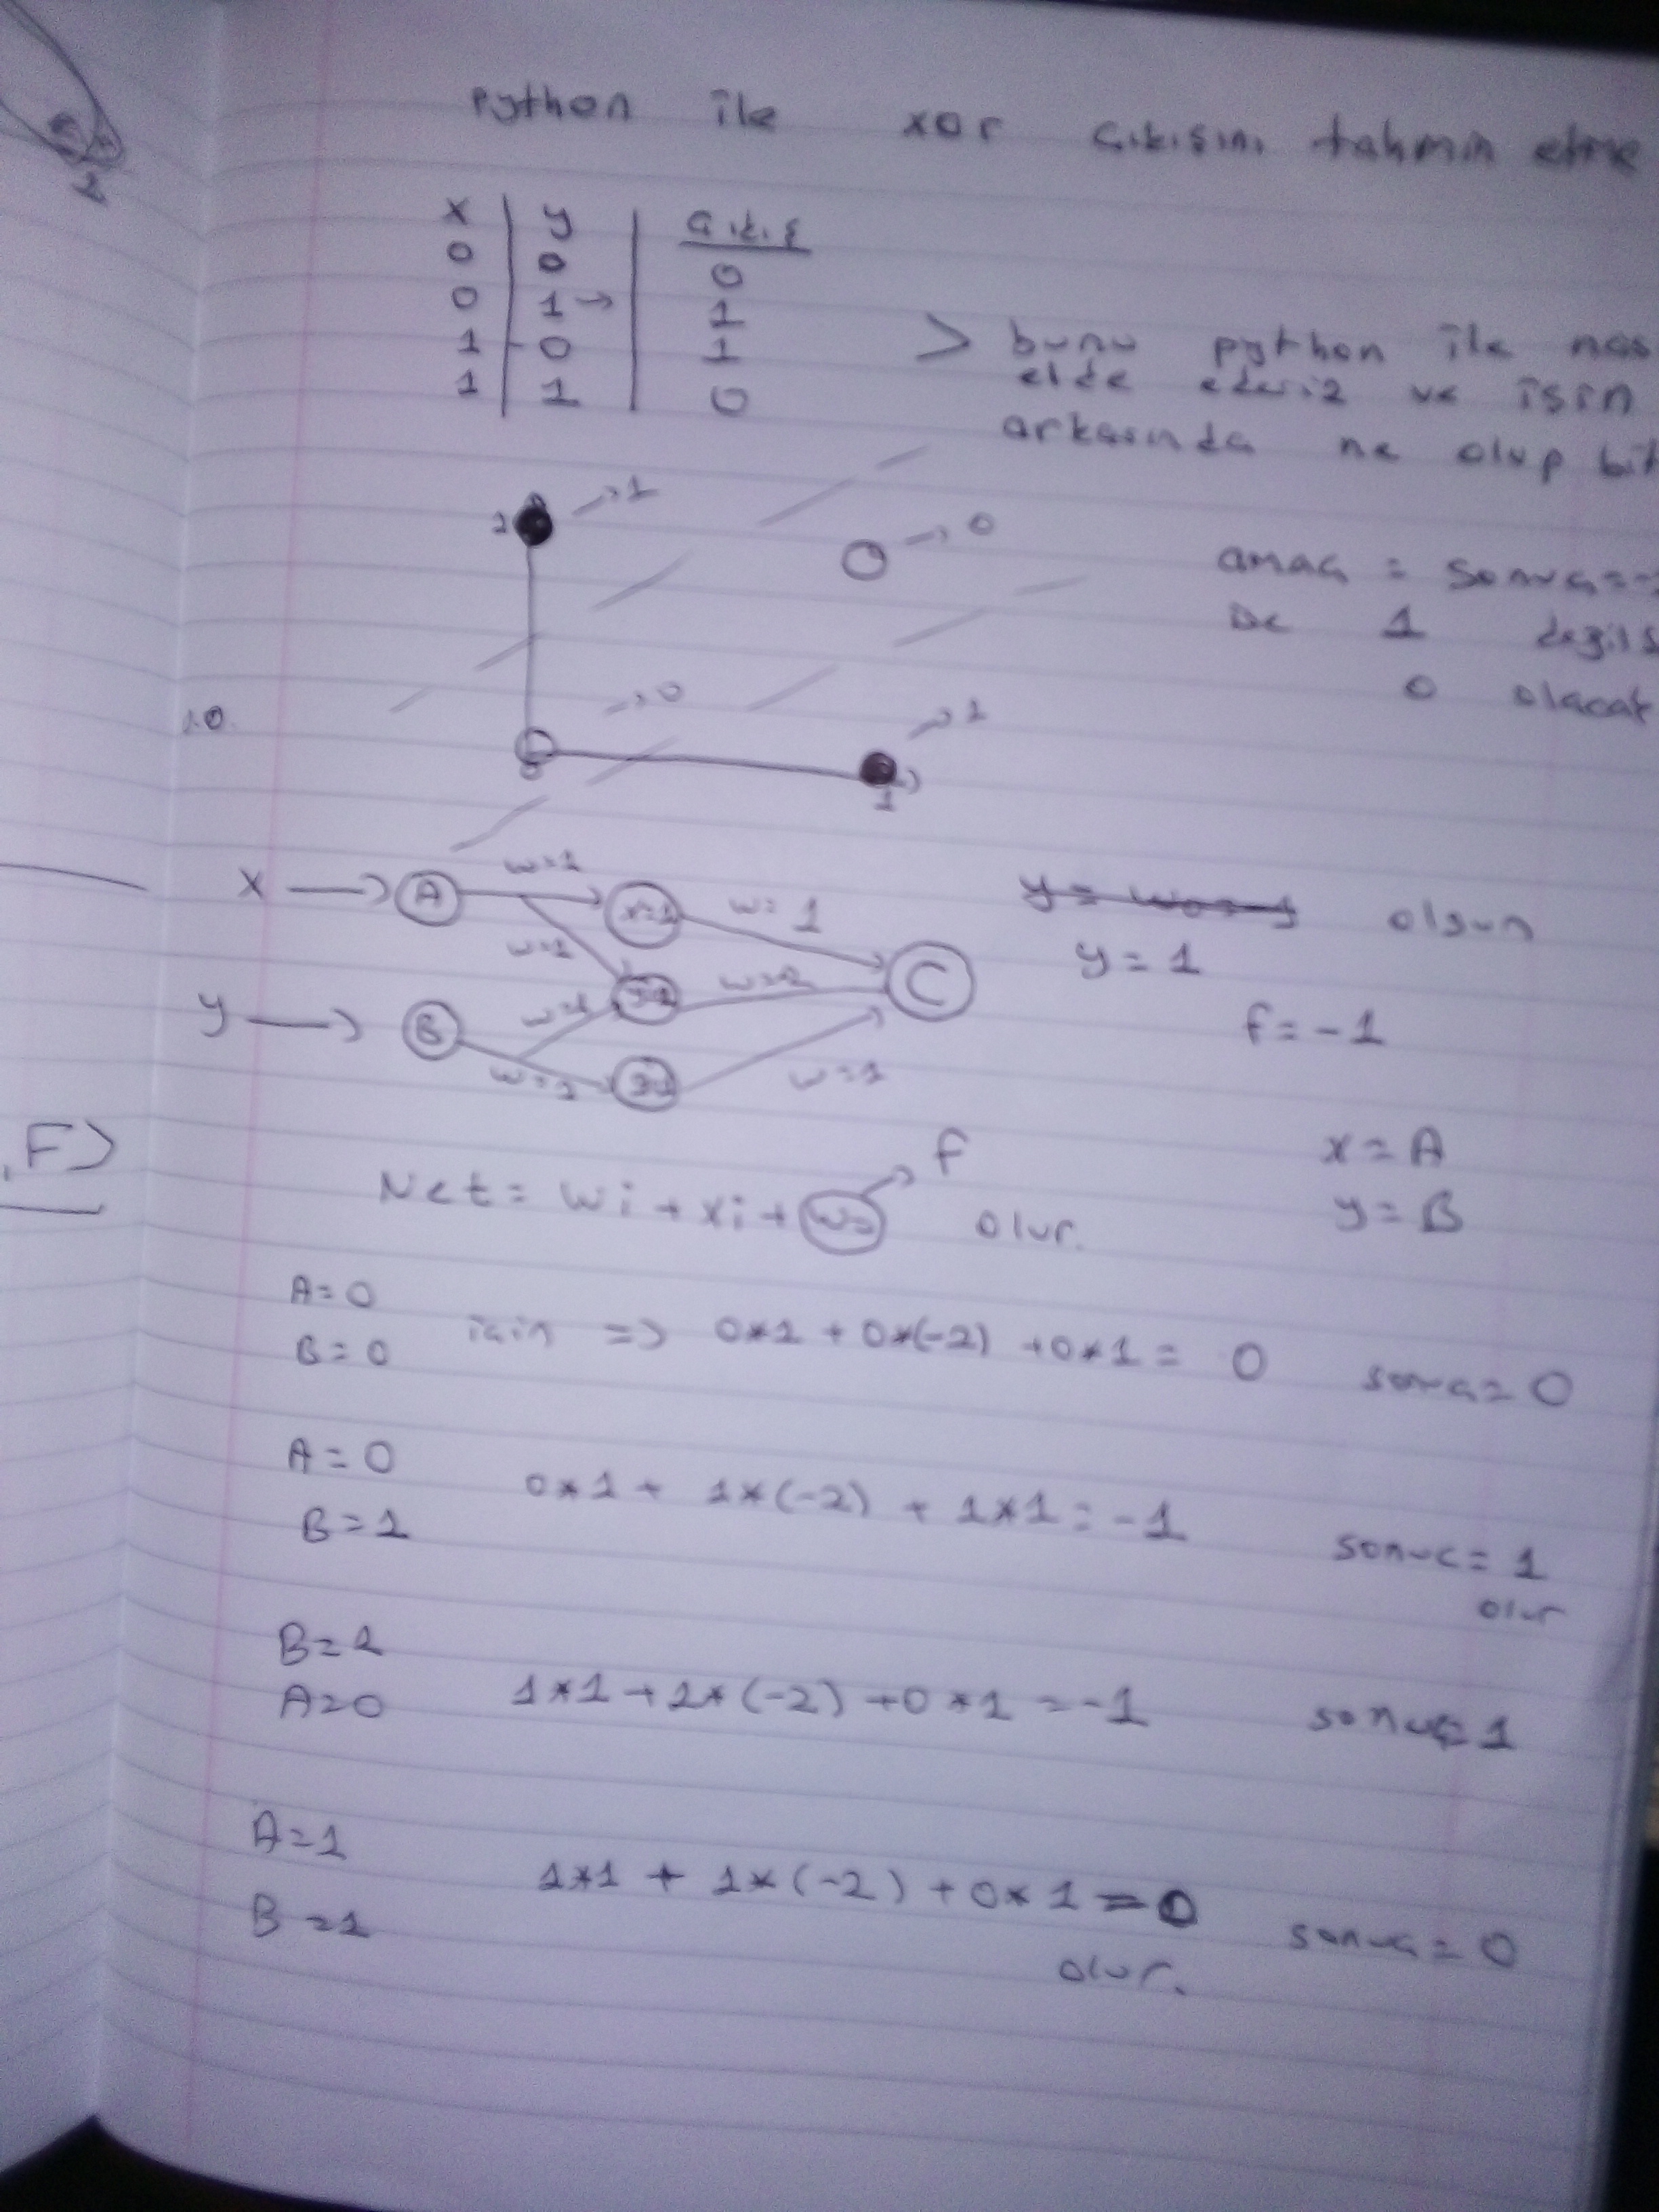 python ile xor çıkışını tahmin etme
x | y | çıkış
0 | 0 | 0
0 | 1 → | 1
1 | 0 | 1
1 | 1 | 0
> bunu python ile
elde ederiz ve işin
arkasında ne olup
→1
→0
amaç = sonuç=
De 1
0 olacak
→0
→1
1
x → A w=1 w=1 w=1
olsun
y = 1
y → B w=1 w=1 C
f = -1
w=1
F>
Net = wi + xi + f olur.
x = A
y = B
A = 0
B = 0 için => 0*1 + 0*(-2) + 0*1 = 0 sonuç = 0
A = 0
B = 1 0*1 + 1*(-2) + 1*1 = -1 sonuc = 1
olur
B = 1
A = 0 1*1 + 1*(-2) + 0*1 = -1 sonuç = 1
A = 1
B = 1 1*1 + 1*(-2) + 0*1 = 0 sonuç = 0
olur.